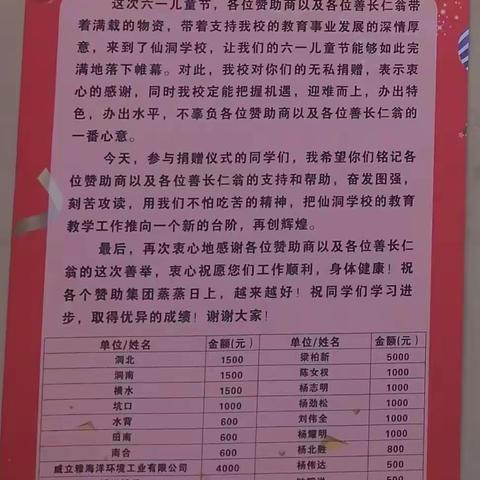 这次六一儿童节，各位赞助商以及各位善长仁翁带
着满载的物资，带着支持我校的教育事业发展的深情厚
意，来到了仙洞学校，让我们的六一儿童节能够如此完
满地落下帷幕。对此，我校对你们的无私捐赠，表示衷
心的感谢，同时我校定能把握机遇，迎难而上，办出特
色，办出水平，不辜负各位赞助商以及各位善长仁翁的
一番心意。
今天，参与捐赠仪式的同学们，我希望你们铭记各
位赞助商以及各位善长仁翁的支持和帮助，奋发图强，
刻苦攻读，用我们不怕吃苦的精神，把仙洞学校的教育
教学工作推向一个新的台阶，再创辉煌。
最后，再次衷心地感谢各位赞助商以及各位善长仁
翁的这次善举，衷心祝愿您们工作顺利，身体健康！祝
各个赞助集团蒸蒸日上，越来越好！祝同学们学习进
步，取得优异的成绩！谢谢大家！
单位/姓名 金额(元) 单位/姓名 金额(元)
洞北 1500 梁柏新 5000
洞南 1500 陈女权 1000
横水 1500 杨志明 1000
坑口 1000 杨劲松 1000
水背 600 刘伟全 1000
田南 600 杨耀明 1000
南合 600 杨北胜 800
威立雅海洋环境工业有限公司 4000 杨伟达 500
500